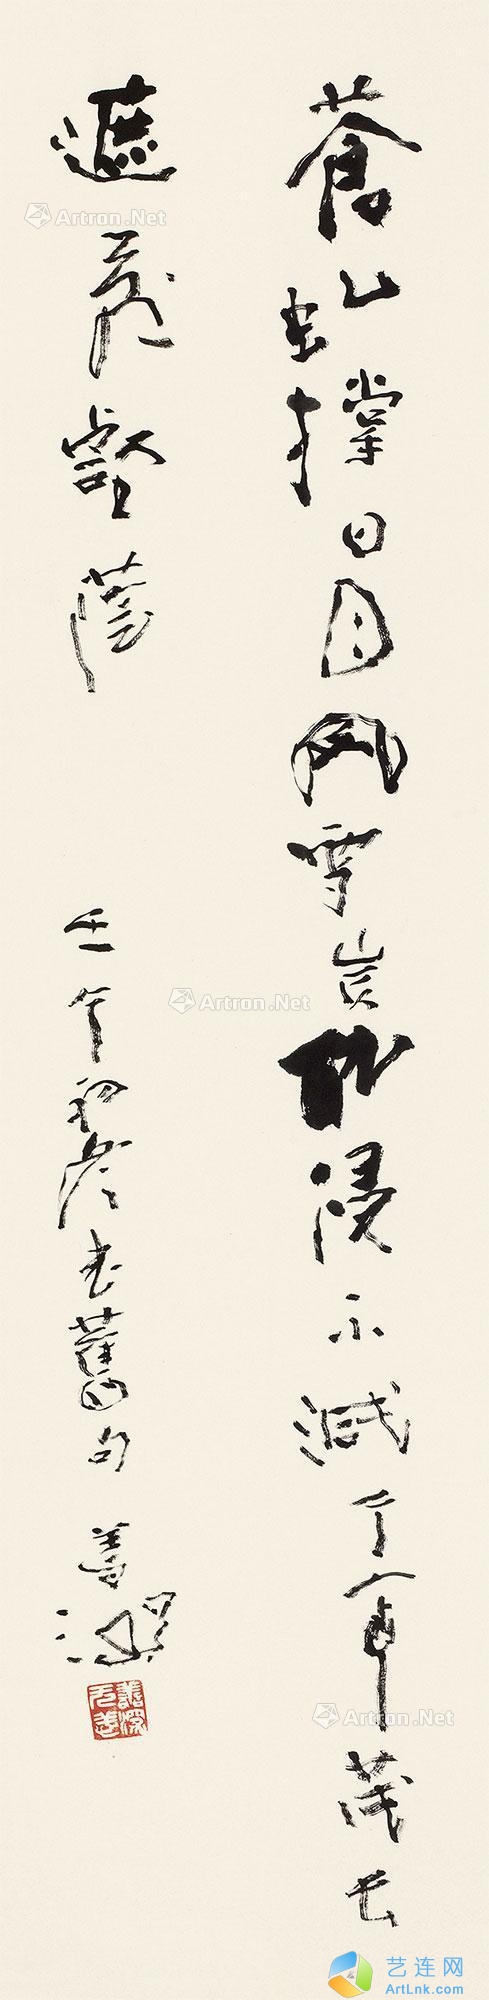 蒼虬撐日月風雪豈能浸不減千年茂長
遮壑蔭
壬午初書舊句 善深
Artron.Net
Artron.Net
Artron.Net
艺连网
ArtLnk.com